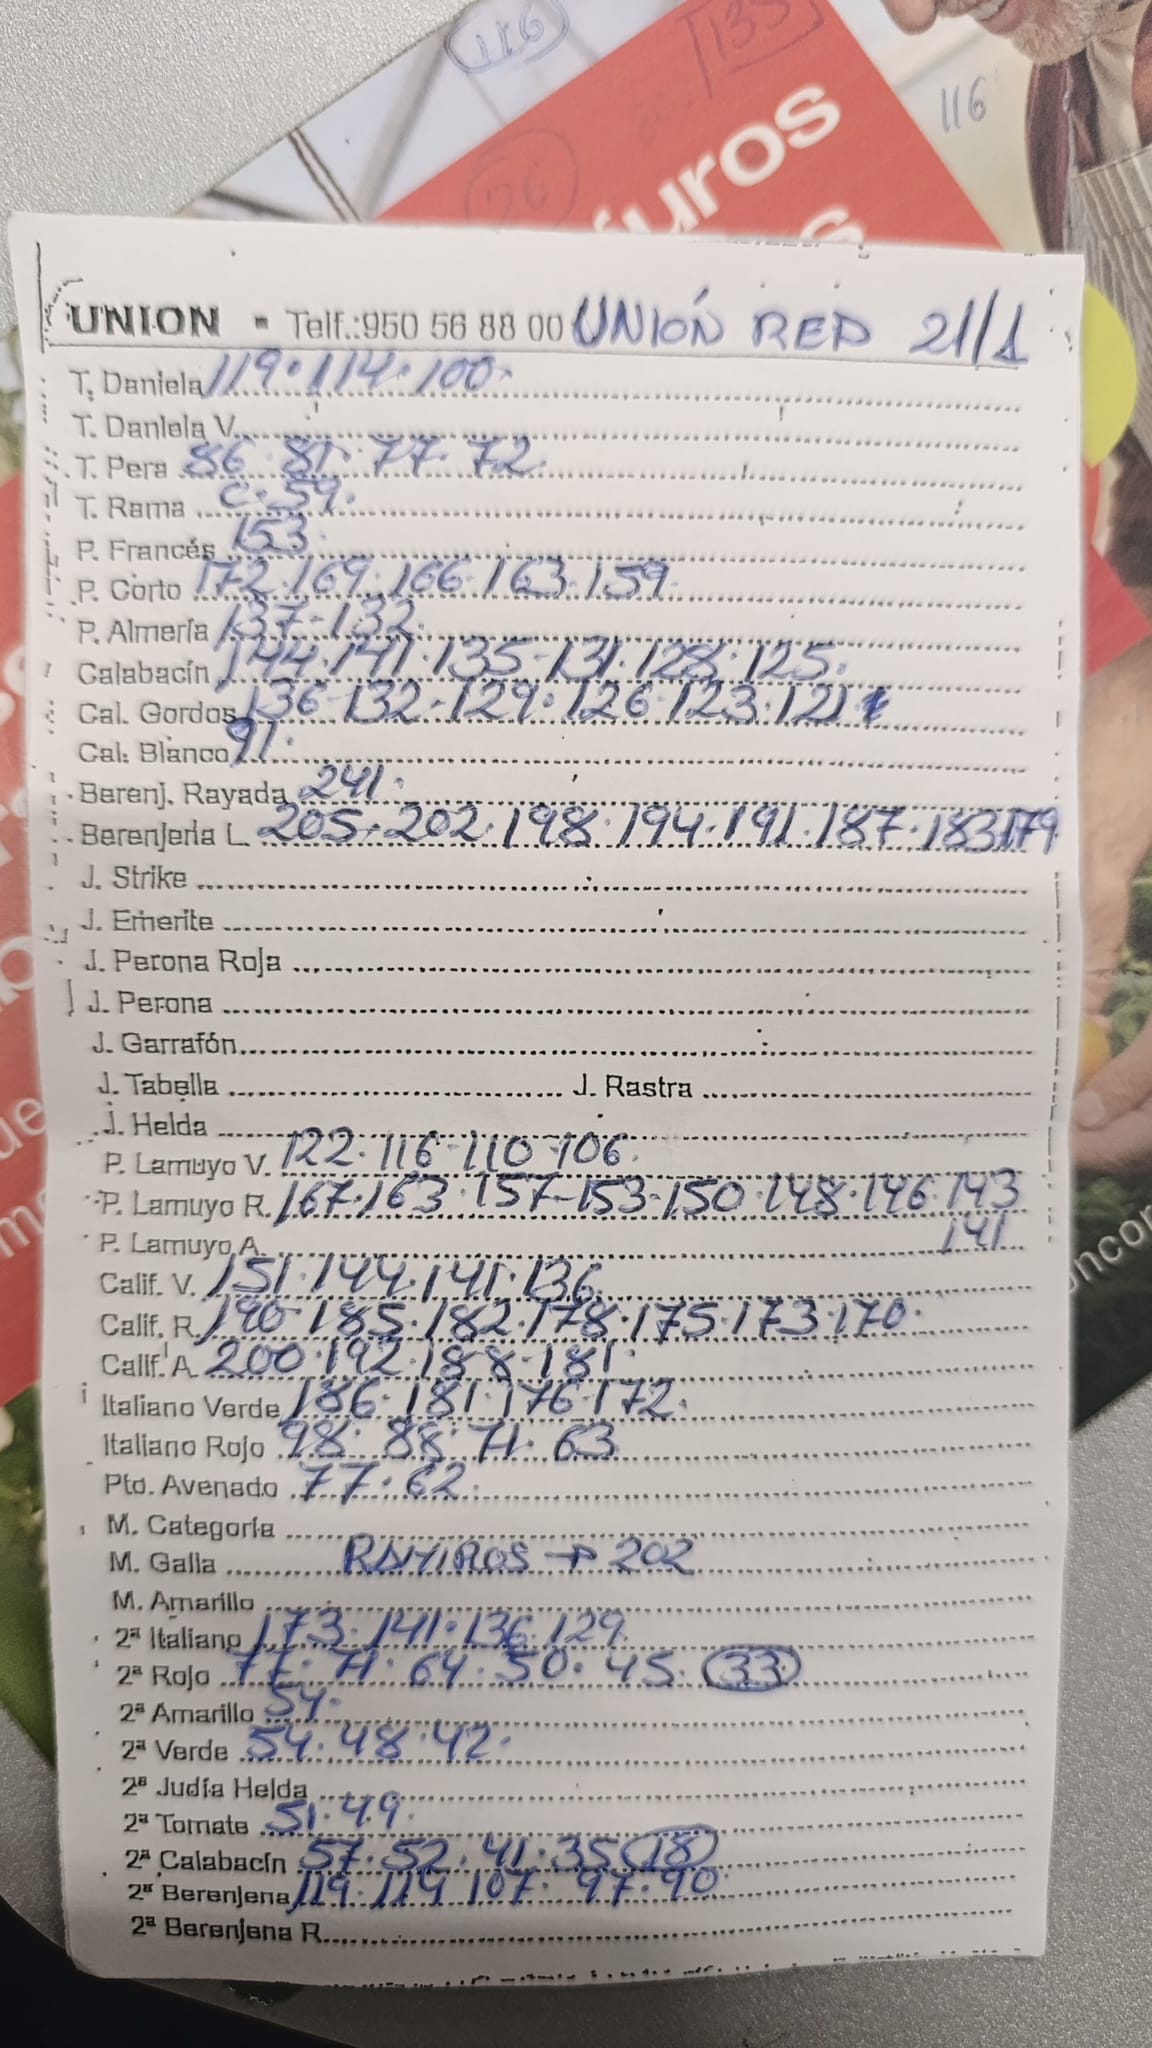 116
135
116
26
furos
s
UNION - Telf.:950 56 88 00 UNIÓN RED 21/1
T. Daniela 119·114·100·
T. Daniela V.
T. Pera 86·81·77·72·
T. Rama C·59·
P. Francés 153·
P. Corto 172·169·166·163·159·
P. Almería 137-132·
Calabacín 144·141·135-131·128·125·
Cal. Gordos 136-132-129·126·123·121
Cal. Blanco 91·
Berenj. Rayada 241·
Berenjena L. 205·202·198·194·191·187·183·179
J. Strike
J. Emerite
J. Perona Roja
J. Perona
J. Garrafón
J. Tabella J. Rastra
J. Helda
P. Lamuyo V. 122·116·110·106·
P. Lamuyo R. 167·163·157-153-150·148·146·143
P. Lamuyo A. 141
Calif. V. 151·144·141·136
Calif. R. 190·185·182·178·175·173·170·
Calif. A. 200·192·188·181·
Italiano Verde 186·181·176·172·
Italiano Rojo 98·88·71·63
Pto. Avenado 77·62·
M. Categoría
M. Galla RAMIROS → 202
M. Amarillo
2ª Italiano 173·141·136·129
2ª Rojo 77·71·64·50·45·33
2ª Amarillo 54·
2ª Verde 54·48·42·
2ª Judía Helda
2ª Tomate 51·49·
2ª Calabacín 57·52·41·35 18
2ª Berenjena 119·114 107·97·90
2ª Berenjena R.